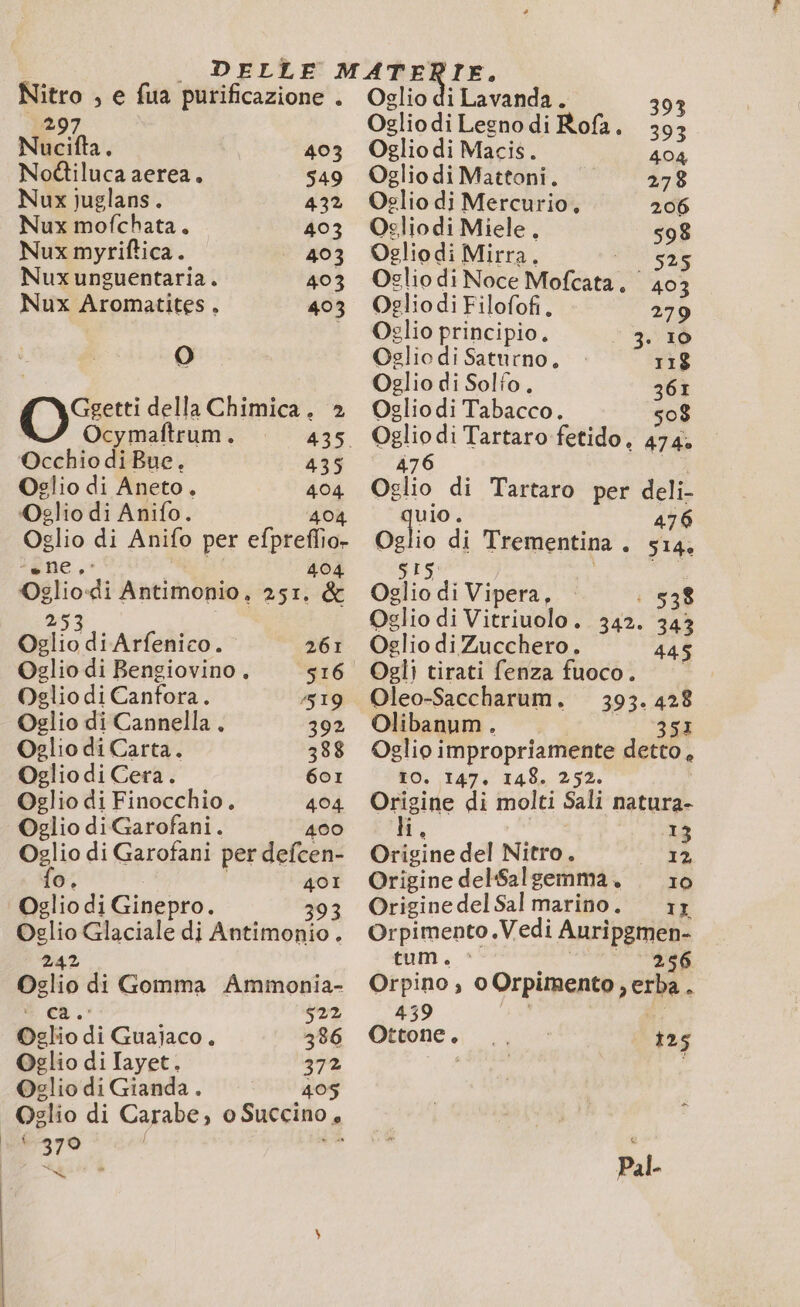 DELLE MATERIE.
Nitro , e ſua purificazione .
297
Nuciſta. 403
Noctiluca aerea. 549
Nux juglans. 432
Nux moſchata. 403
Nux myriſtica. 403
Nux unguentaria. 403
Nux Aromatites. 403
O
OGgetti della Chimica. 2
Ocymaſtrum. 435
Occhio di Bue. 435
Oglio di Aneto. 404
Oglio di Aniſo. 404
Oglio di Aniſo per eſpreſſio-
ne. 404
Oglio di Antimonio. 251. &
253
Oglio di Arſenico. 261
Oglio di Bengiovino. 516
Oglio di Canfora. 519
Oglio di Cannella. 392
Oglio di Carta. 388
Oglio di Cera. 601
Oglio di Finocchio. 404
Oglio di Garofani. 400
Oglio di Garofani per deſcen-
ſo. 401
Oglio di Ginepro. 393
Oglio Glaciale di Antimonio.
242
Oglio di Gomma Ammonia-
ca. 522
Oglio di Guajaco. 386
Oglio di Iayet. 372
Oglio di Gianda. 405
Oglio di Carabe, o Succino.
379
Oglio di Lavanda. 393
Oglio di Legno di Roſa. 393
Oglio di Macis. 404
Oglio di Mattoni. 278
Oglio di Mercurio. 206
Oglio di Miele. 598
Oglio di Mirra. 525
Oglio di Noce Moſcata. 403
Oglio di Filoſofi. 279
Oglio principio. 3. 10
Oglio di Saturno. 118
Oglio di Solfo. 361
Oglio di Tabacco. 508
Oglio di Tartaro fetido. 474.
476
Oglio di Tartaro per deli-
quio. 476
Oglio di Trementina. 514.
515
Oglio di Vipera. 538
Oglio di Vitriuolo. 342. 343
Oglio di Zucchero. 445
Oglj tirati ſenza fuoco.
Oleo-Saccharum. 393. 428
Olibanum. 351
Oglio impropriamente detto.
10. 147. 148. 252.
Origine di molti Sali natura-
li. 13
Origine del Nitro. 12
Origine del Salgemma. 10
Origine del Sal marino. 11
Orpimento. Vedi Auripgmen-
tum. 256
Orpino, o Orpimento, erba.
439
Ottone. 125
Pal-